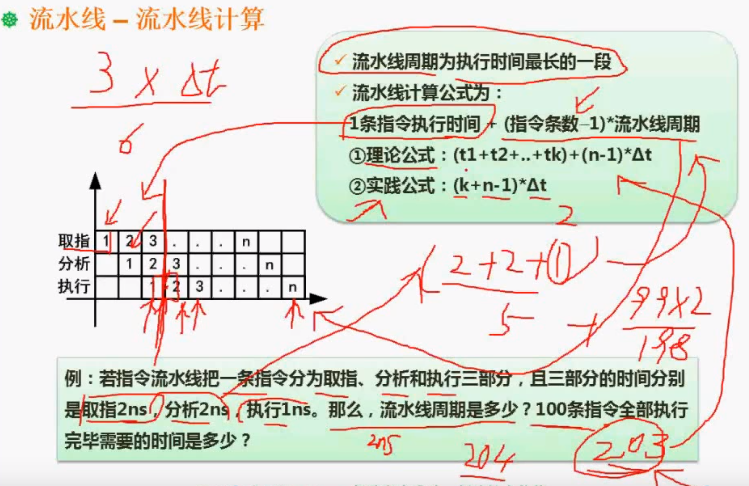 流水线 – 流水线计算
3 x Δt
6
流水线周期为执行时间最长的一段
流水线计算公式为：
1条指令执行时间 + (指令条数–1)*流水线周期
①理论公式：(t1+t2+..+tk)+(n-1)*Δt
②实践公式：(k+n-1)*Δt
2
取指 1 2 3 . . . n
分析 1 2 3 . . . n
执行 1 2 3 . . . n
(2+2+①)
5 + 99x2
198
例：若指令流水线把一条指令分为取指、分析和执行三部分，且三部分的时间分别
是取指2ns，分析2ns，执行1ns。那么，流水线周期是多少？100条指令全部执行
完毕需要的时间是多少？
2ns
204
203